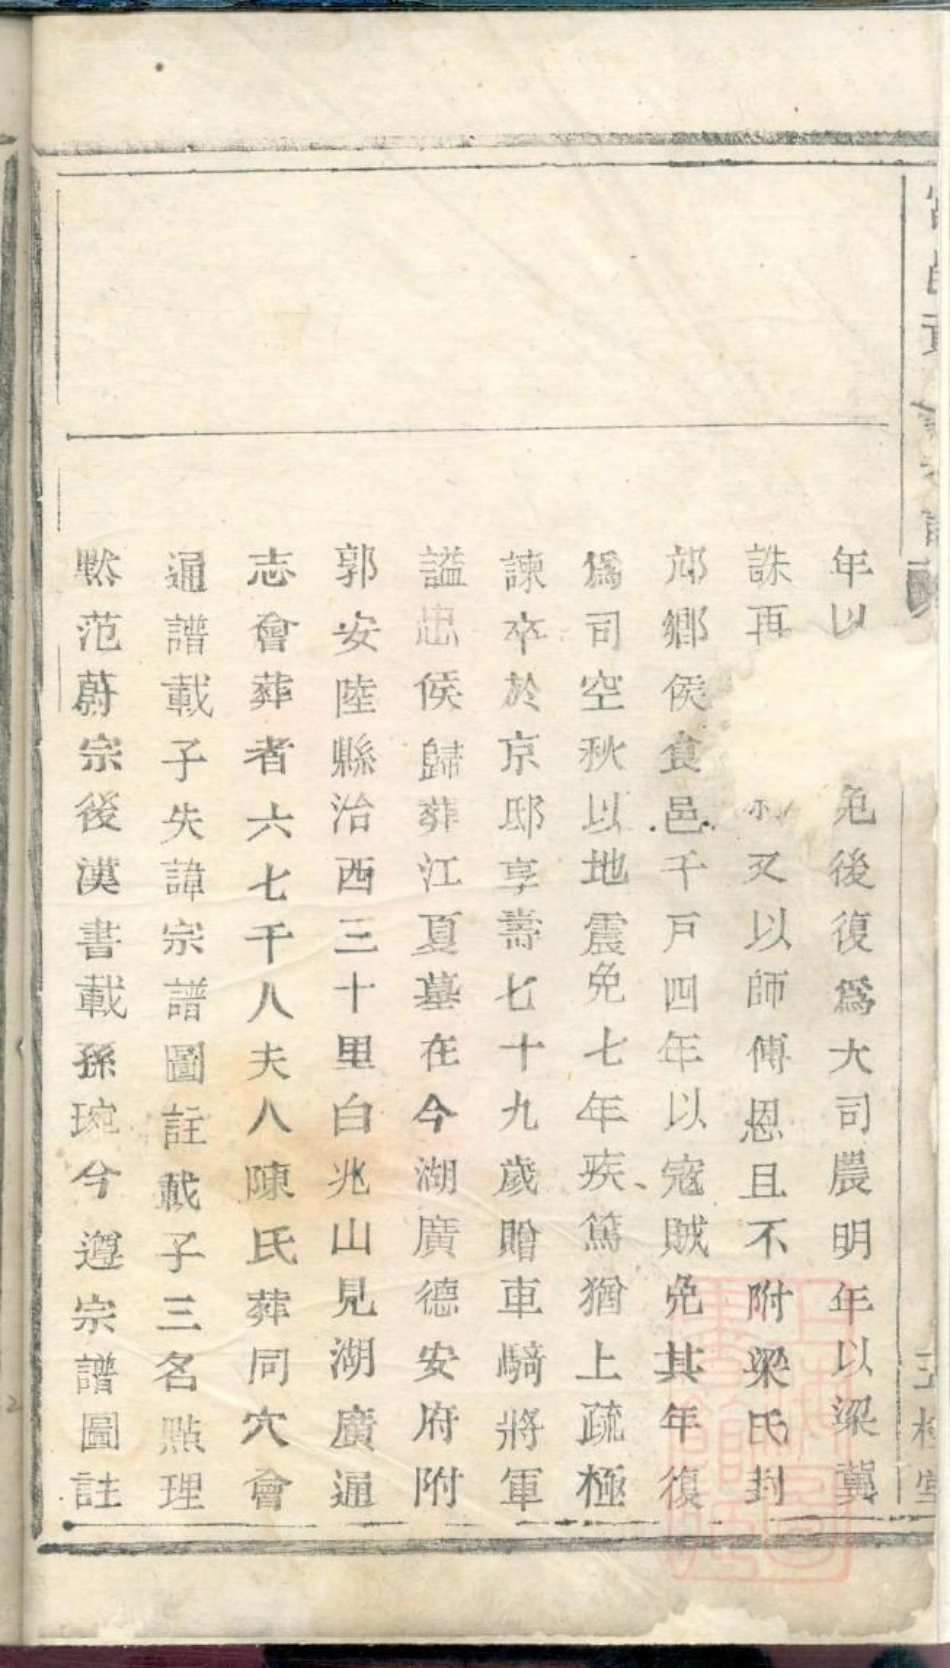 年以免後復爲大司農明年以梁冀
誅再又以師傅恩且不附梁氏封
邟鄉侯食邑千戸四年以寇賊免其年復
爲司空秋以地震免七年疾篤猶上疏極
諫卒於京邸享壽七十九歲贈車騎將軍
謚忠侯歸葬江夏墓在今湖廣德安府附
郭安陸縣治西三十里白兆山見湖廣通
志會葬者六七千人夫人陳氏葬同穴會
通譜載子失諱宗譜圖註載子三名㸃理
黙范蔚宗後漢書載孫琬今遵宗譜圖註